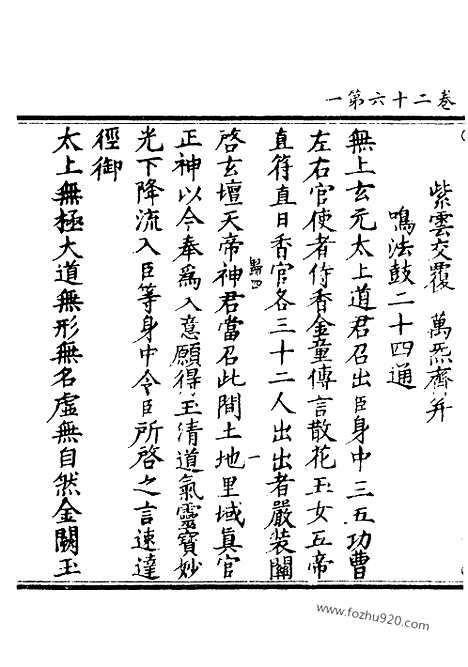 卷二十六第一
紫雲交覆萬炁齊并
鳴法鼓二十四通
無上玄元太上道君召出臣身中三五功曹
左右官使者侍香金童傳言散花玉女五帝
直符直日香官各三十二人出出者嚴裝關
啓玄壇天帝神君當召此間土地里域眞官
正神以今奉爲入意願得玉清道氣靈寶妙
光下降流入臣等身中令臣所啓之言速達
徑御
太上無極大道無形無名虛無自然金闕玉
一
www.fozhu920.com